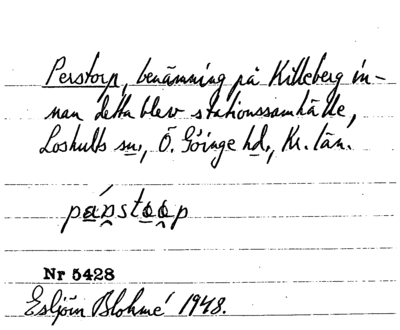 Perstorp, benämning på Killeberg in-
nan detta blev stationssamhälle,
Loshults sn., Ö. Göinge hd., Kr. län.
Nr 5428
Esbjörn Blohmé 1948.